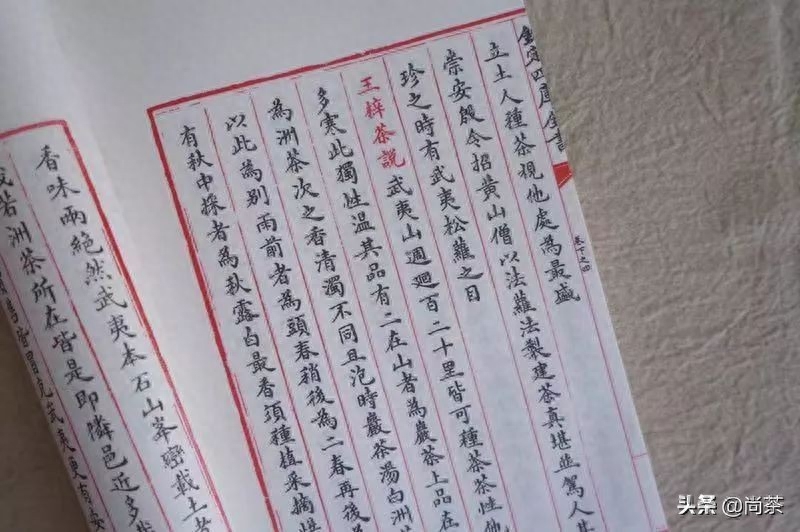 欽定四庫全書
卷下之四
立土人種茶視他處為最盛
崇安殷令招黃山僧以法蘿法製建茶真堪並駕人甚
珍之時有武夷松蘿之目
王梓茶説 武夷山週廻百二十里皆可種茶茶性他
多寒此獨性温其品有二在山者為巖茶上品在
為洲茶次之香清濁不同且泡時巖茶湯白洲
以此為別雨前者為頭春稍後為二春再後為
有秋中採者為秋露白最香須種植采摘焙
香味兩絶然武夷本石山峯巒載土者
若洲茶所在皆是即隣邑近多栽
皆冒充武夷更有安
头条 @尚茶